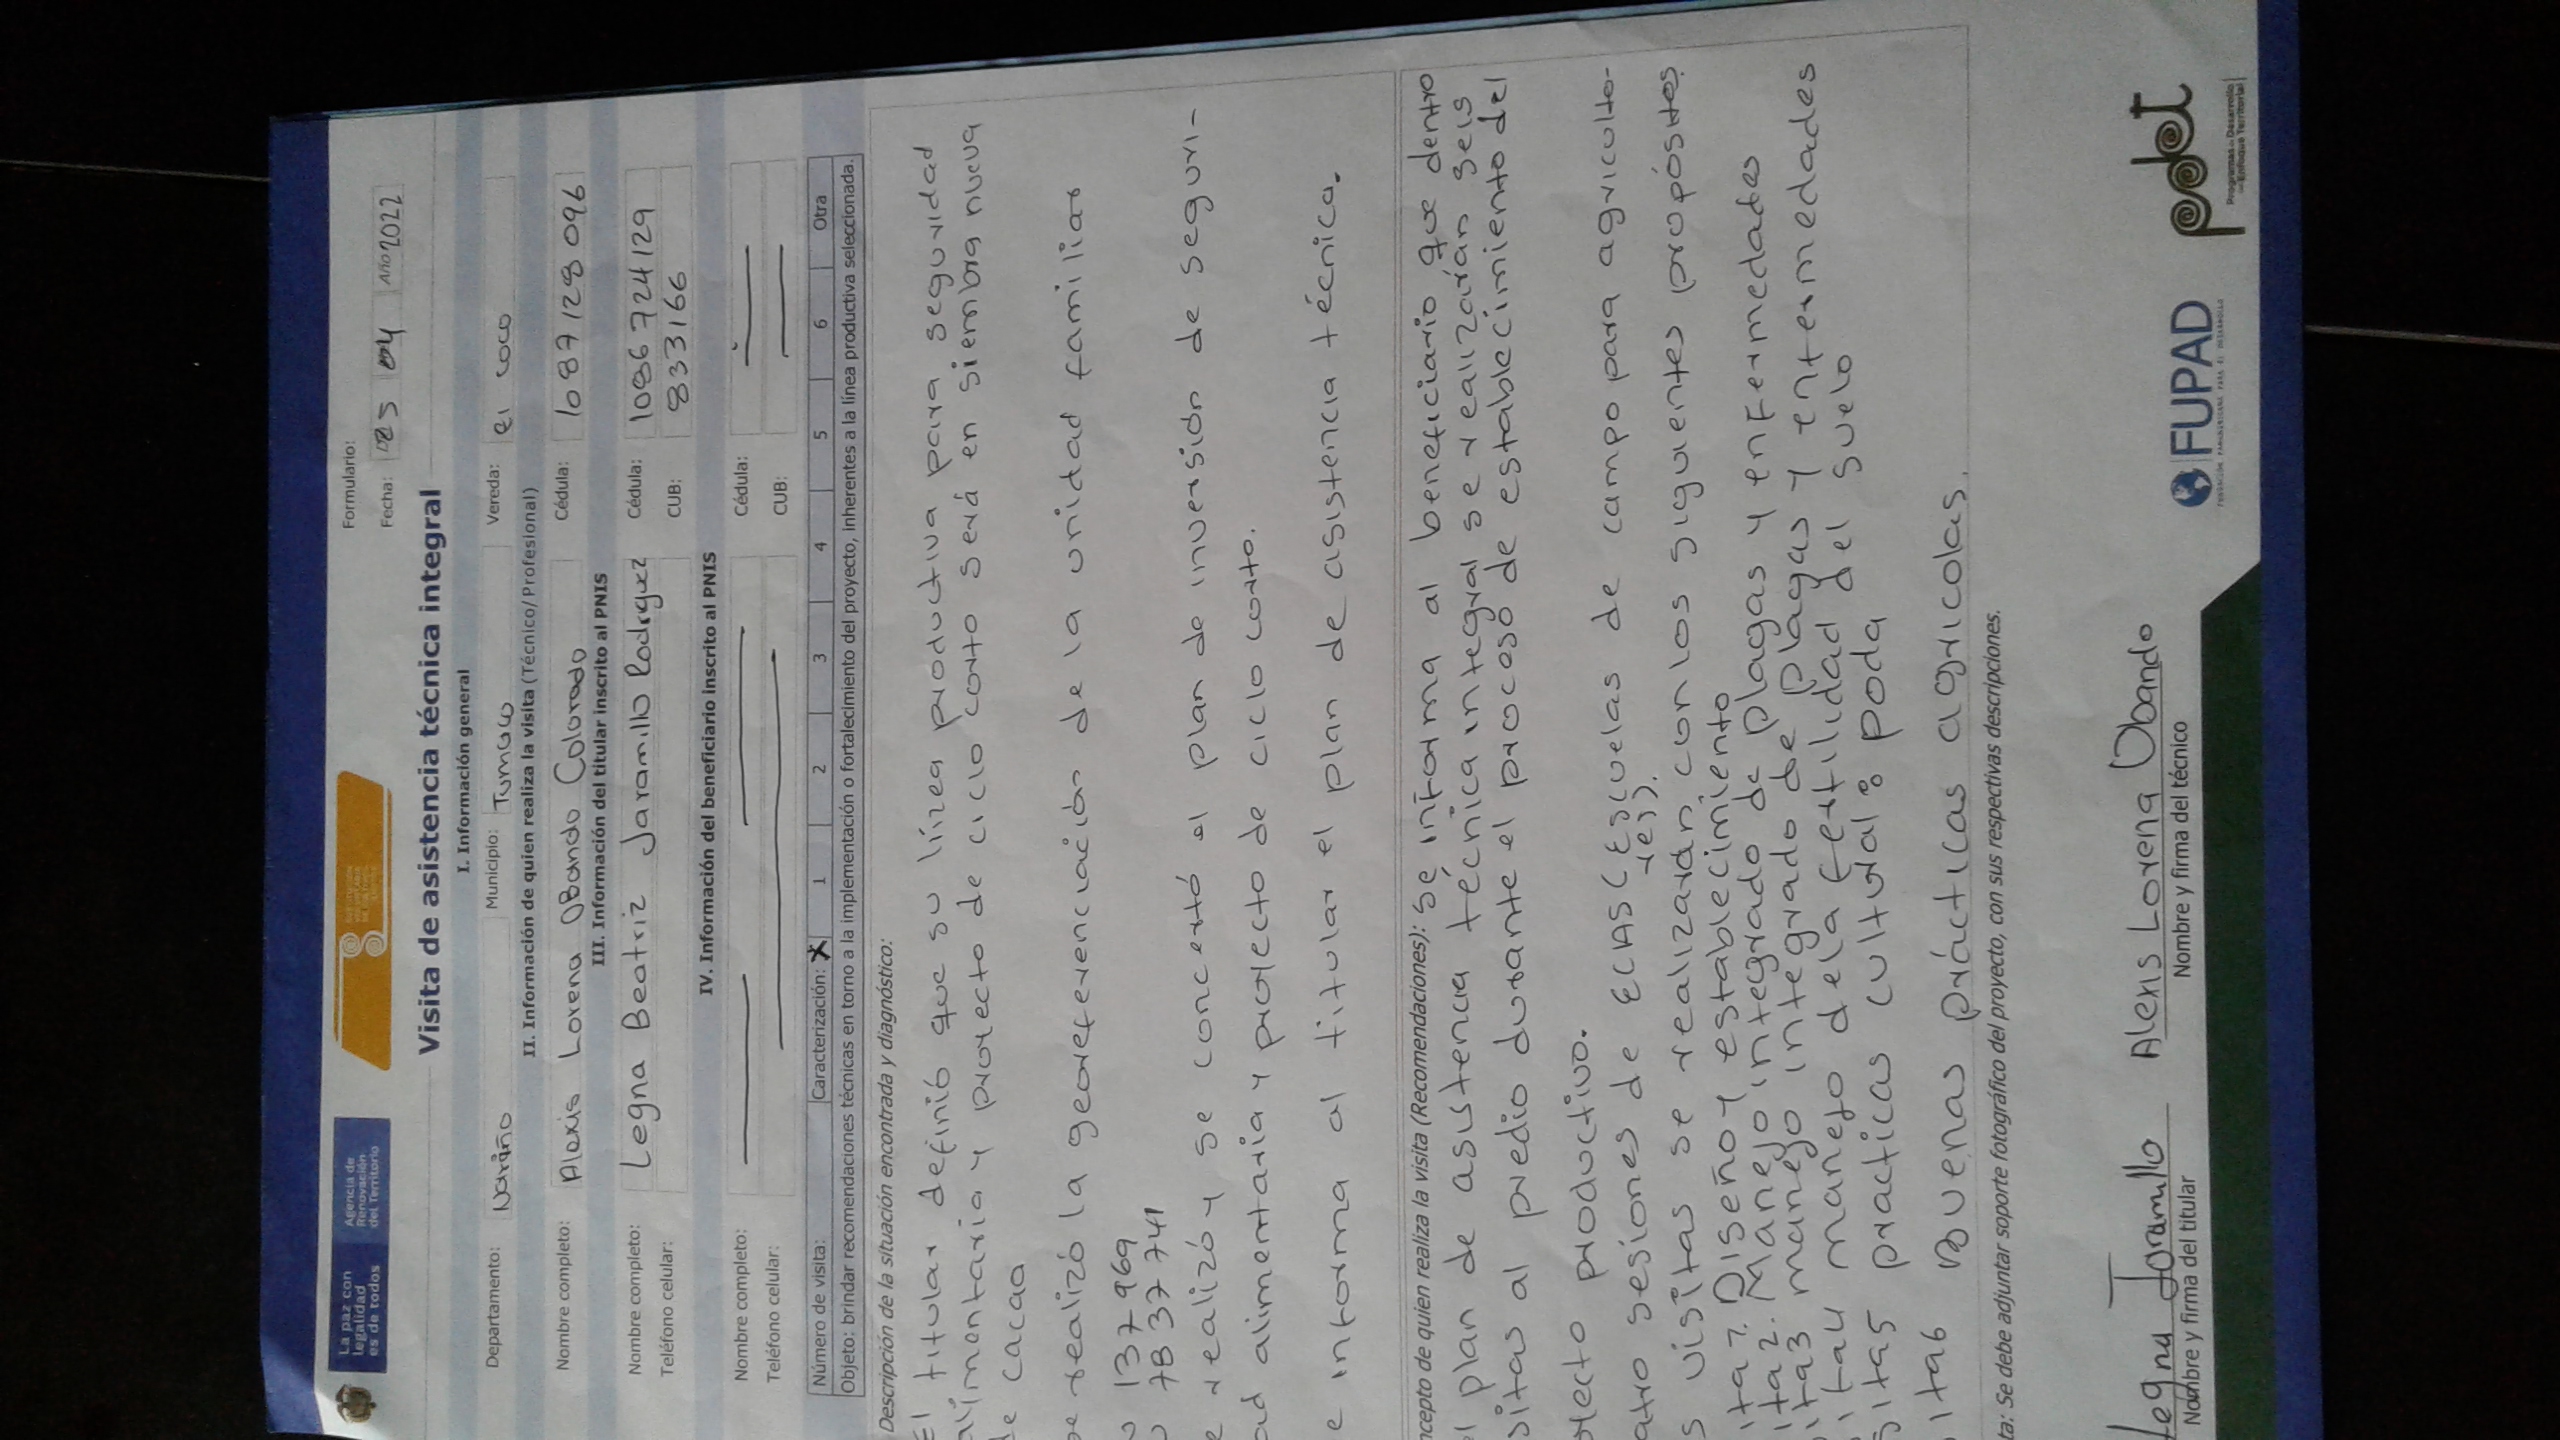 La paz con
legalidad
es de todos
Agencia de
Renovación
del Territorio
Formulario:
Fecha: 04 Año 2022
Visita de asistencia técnica integral
I. Información general
Departamento: Nariño Municipio: Tumaco Vereda: el coco
II. Información de quien realiza la visita (Técnico/Profesional)
Nombre completo: Alexis Lorena OBando Colorado Cédula: 1087128096
III. Información del titular inscrito al PNIS
Nombre completo: Legna Beatriz Jaramillo Rodriguez Cédula: 1086724129
Teléfono celular: CUB: 833166
IV. Información del beneficiario inscrito al PNIS
Nombre completo: Cédula:
Teléfono celular: CUB:
Número de visita: Caracterización: X 1 2 3 4 5 6 Otra
Objeto: brindar recomendaciones técnicas en torno a la implementación o fortalecimiento del proyecto, inherentes a la línea productiva seleccionada.
Descripción de la situación encontrada y diagnóstico:
El titular definió que su línea productiva para seguridad
alimentaria y proyecto de ciclo corto será en siembra nueva
de cacao
se realizó la georeferenciación de la unidad familiar
137969
7837741
e realizó y se concertó el plan de inversión de seguri-
ad alimentaria y proyecto de ciclo corto.
e informa al titular el plan de asistencia técnica.
ncepto de quien realiza la visita (Recomendaciones): se informa al beneficiario que dentro
l plan de asistencia técnica integral se realizarán seis
sitas al predio durante el proceso de establecimiento del
yecto productivo.
atro sesiones de ECAS (Escuelas de campo para agriculto-
res).
s visitas se realizarán con los siguientes propósitos
ita 1. Diseño y establecimiento
ita 2. Manejo integrado de plagas y enfermedades
ita 3 manejo integrado de plagas y enfermedades
ita 4 manejo de la fertilidad del suelo
sita 5 practicas cultural: poda
ita 6 Buenas prácticas agrícolas.
ta: Se debe adjuntar soporte fotográfico del proyecto, con sus respectivas descripciones.
Legna Jaramillo Alexis Lorena Obando
Nombre y firma del titular Nombre y firma del técnico
FUPAD
FUNDACIÓN PANAMERICANA PARA EL DESARROLLO
pdet
Programas de Desarrollo
con Enfoque Territorial